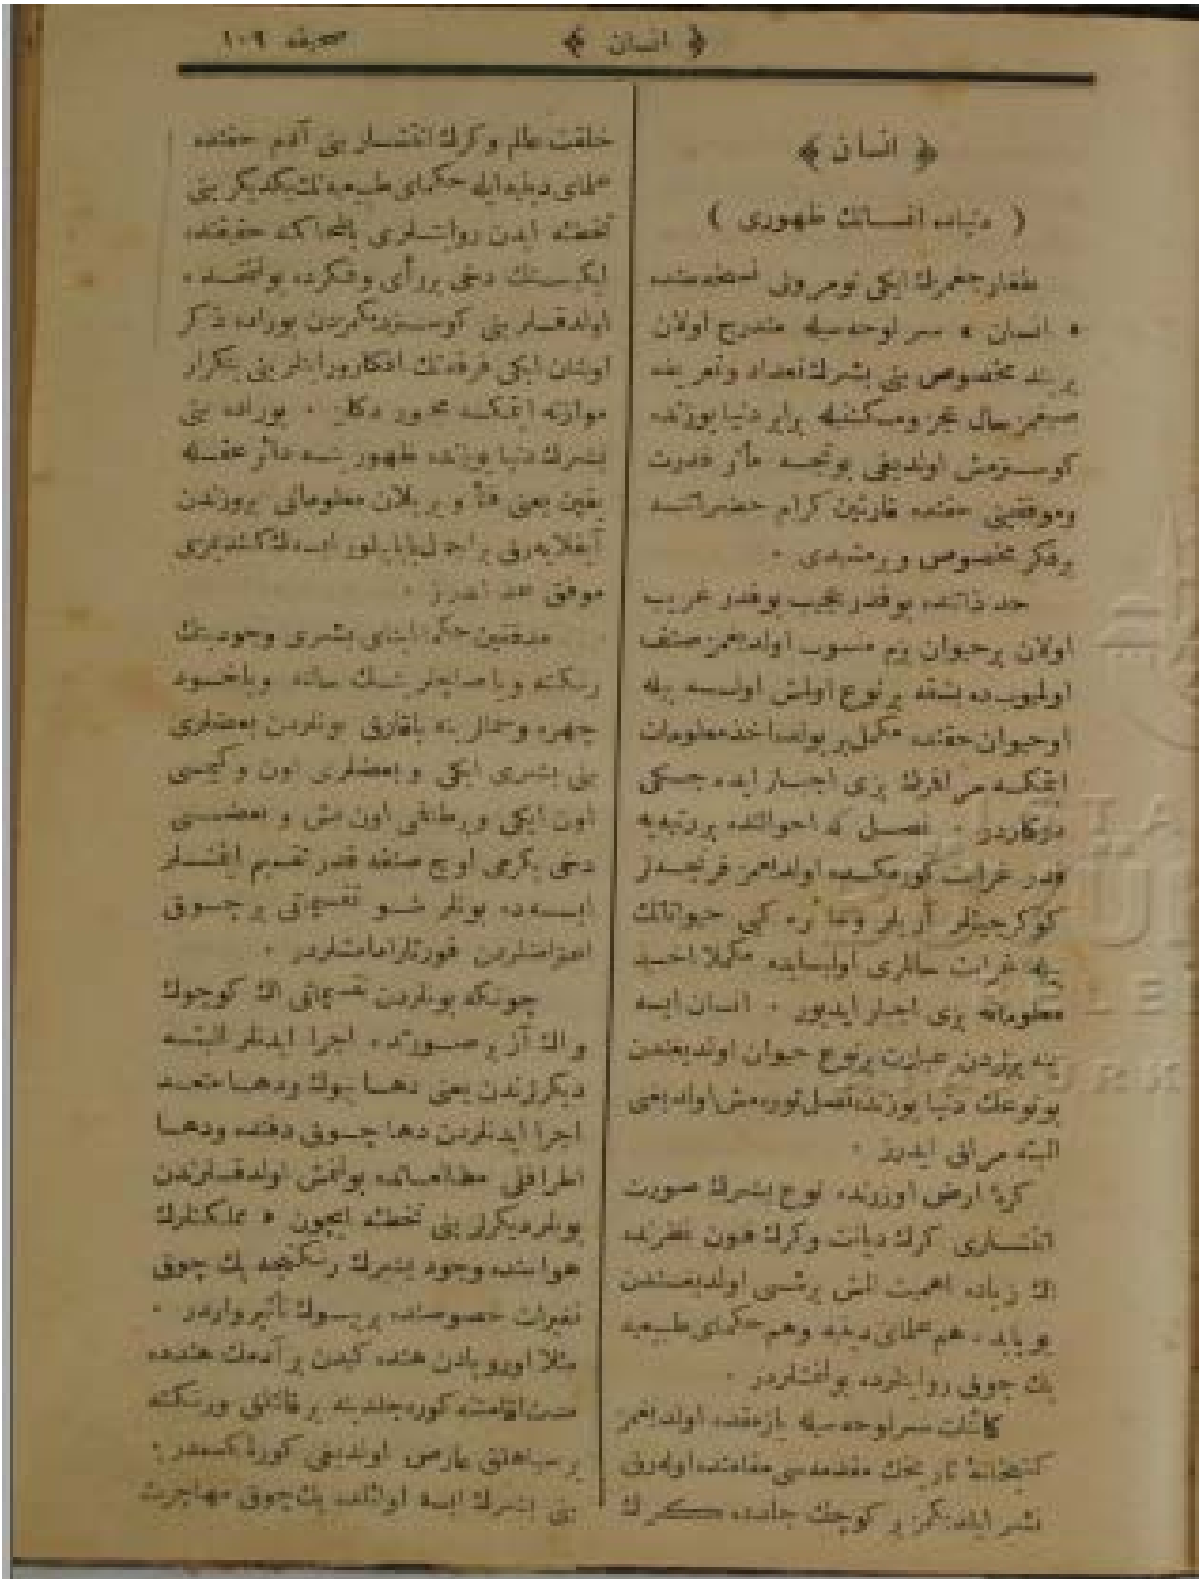 ﴿ انسان ﴾
صحیفه ۱۰۹
﴿ انسان ﴾
( دنیاده انسانك ظهوری )
طغارجغمزك ایکی نومرولی نسخه‌سنده
« انسان » سرلوحه‌سیله مندرج اولان
بر بند مخصوص بنی بشرك تعداد و تعریفه
صیغمز حال عجز و مسکنتیله برابر دنیا یوزنده
کوسترمش اولدیغی بونجه مآثر قدرت
وموفقیتی حقنده قارئین کرام حضراتنه
بر فکر مخصوص ویرمشیدی .
حد ذاتنده بوقدر عجیب بوقدر غریب
اولان بر حیوان بزم منسوب اولدیغمز صنف
اولمیوب ده بشقه بر نوع اولمش اولسه بیله
او حیوان حقنده مکمل بر یولده اخذ معلومات
ایتمکه مراقمزك بزی اجبار ایده‌جکی
درکاردر . نصل که احوالنده بر رتبه‌یه
قدر غرابت کورمکده اولدیغمز قرنجه‌لر
کوکرجینلر آریلر وسائره کبی حیواناتك
بیله غرابت حاللری اولبابده مکملا اخذ
معلوماته بزی اجبار ایدیور . انسان ایسه
ینه بزلردن عبارت بر نوع حیوان اولدیغندن
بونوعك دنیا یوزنده نصل توره‌مش اولدیغنی
البته مراق ایدرز .
کرهٔ ارض اوزرنده نوع بشرك صورت
انتشاری کرك دیانت وکرك فنون نظرنده
اك زیاده اهمیت آلمش برشی اولدیغندن
بو بابده هم علمای دینیه وهم حکمای طبیعیه
پك چوق روایتلرده بولنمشلردر .
کائنات سرلوحه‌سیله یازمقده اولدیغمز
کتبخانهٔ تاریخك مقدمه‌سی مقامنده اوله‌رق
نشر ایلدیکمز بر کوچك جلدده کرك
خلقت عالم وکرك انتشار بنی آدم حقنده
علمای دینیه ایله حکمای طبیعیه‌نك یکدیگرینی
تخطئه ایدن روایتلری بالمحاکمه حقیقتده
ایکیسنك دخی بر رأی وفکرده بولنمقده
اولدقلرینی کوستردیکمزدن بوراده ذکر
اولنان ایکی فرقه‌نك افکار وروایتلرینی بتکرار
موازنه ایتمکه مجبور دکلز . بوراده بنی
بشرك دنیا یوزنده ظهورینه دائر عقله
یقین یعنی فنأ ویریلان معلوماتی بروزندن
موفق عد ایدرز .
مدققین حکما ابنای بشری وجودینك
رنکنه ویا صاچلرینك ساننه ویاخود
چهره وسمالرینه باقارق بونلردن بعضلری
بنی بشری ایکی وبعضلری اون وکیمسی
اون ایکی وبرطاقی اون بش وبعضیسی
دخی یکرمی اوچ صنفه قدر تقسیم ایتمشلر
ایسه‌ده بونلر شو تقسیماتی بر چوق
اعتراضلردن قورتارامامشلردر .
چونکه بونلردن تقسیماتی اك کوچوك
واك آز بر صورتده اجرا ایدنلر البته
دیگرلرندن یعنی دها بیوك ودها متعدد
اجرا ایدنلردن دها چوق دقتده ودها
اطرافلی مطالعاتده بولنمش اولدقلرندن
بونلر دیگرلرینی تخطئه ایچون « مملکتلرك
هواسنده وجود بشرك رنکنجه پك چوق
تغیرات خصوصنده بر بیوك تأثیر واردر .
مثلا اوروپادن هنده کیدن بر آدمك هندده
مدت اقامتنه کوره جلدینه بر قالنلق ورنکنه
بر سیاهلق عارض اولدیغی کوریلمکده‌در ؛
بنی بشرك ایسه اوائلده پك چوق مهاجرت